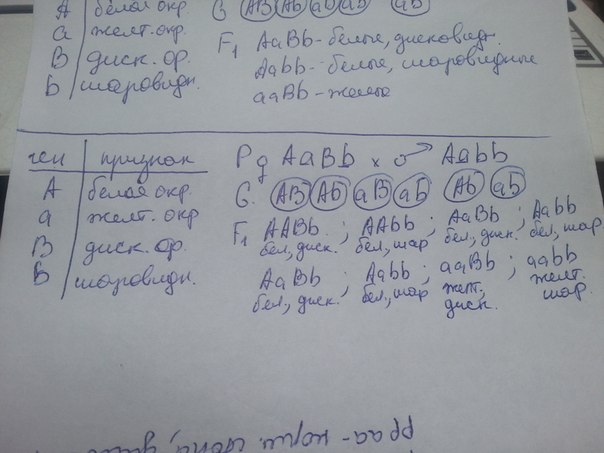 A | белая окр. G (AB) (Ab) (aB) (ab) (ab)
a | желт. окр. F1 AaBb - белые, дисковидн.
B | диск. ф. Aabb - белые, шаровидные
b | шаровидн. aaBb - желтые
ген | признак P ♀ AaBb x ♂ Aabb
A | белая окр. G. (AB) (Ab) (aB) (ab) (Ab) (ab)
a | желт. окр F1 AABb ; AAbb ; AaBb ; Aabb
бел, диск. бел., шар бел., диск. бел., шар.
B | диск. ф. AaBb ; Aabb ; aaBb ; aabb
b | шаровидн. бел., диск. бел., шар желт, диск. желт. шар.